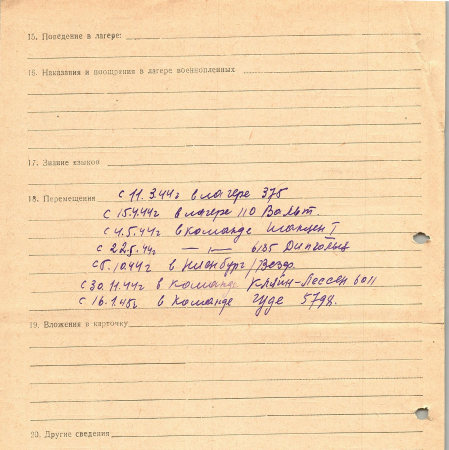 15. Поведение в лагере:
16. Наказания и поощрения в лагере военнопленных
17. Знание языков
18. Перемещения с 11.3.44г в лагере 375
с 15.4.44г в лагере 110 Вольт.
с 4.5.44г в команде
с 22.5.44г — " — 6135 Дипгольц
с 5.10.44г в Ниенбург/Везер.
с 30.11.44г в команде Кляйн-Лессен 6011
с 16.1.45г в команде Гуде
19. Вложения в карточку
20. Другие сведения